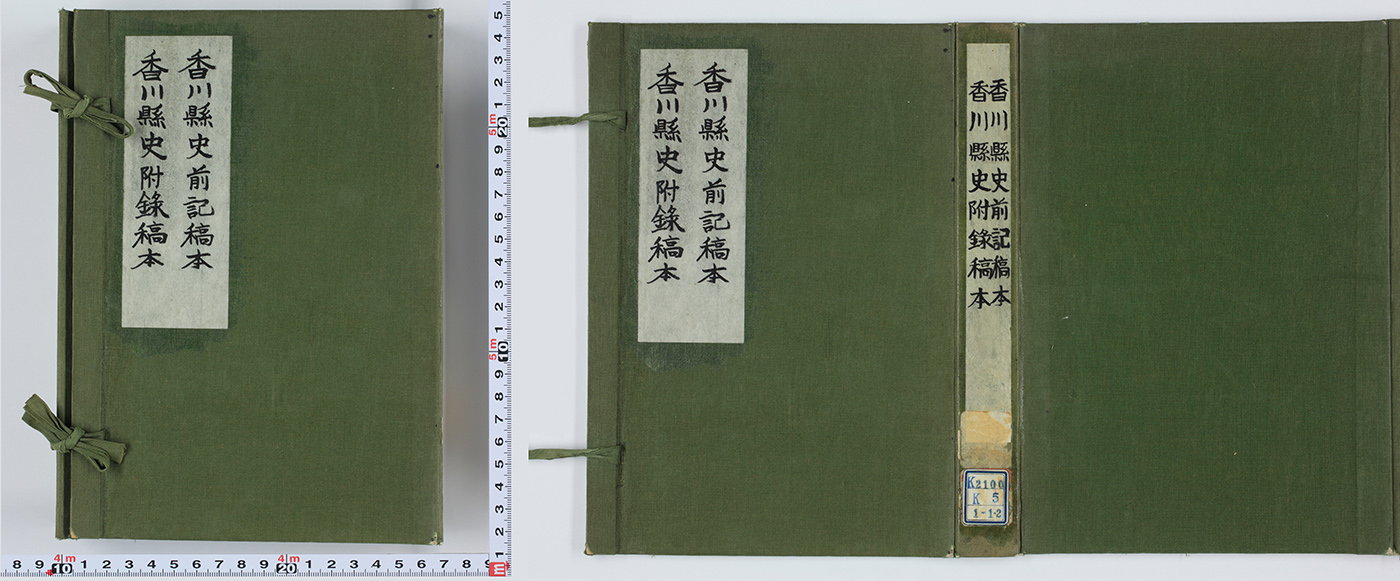 香川縣史前記稿本
香川縣史附錄稿本
5 4 3 2 1 5|m 20 9 8 7 6 5 4 3 2 1 5|m 10 9 8 7 6 5 4 3 2 1 m
8 9 4|m 10 1 2 3 4 5 6 7 8 9 4|m 20 1 2 3 4 5 6 7 8 9
香川縣史前記稿本
香川縣史附錄稿本
香川縣史前記稿本
香川縣史附錄稿本
K2100
K 5
1-12